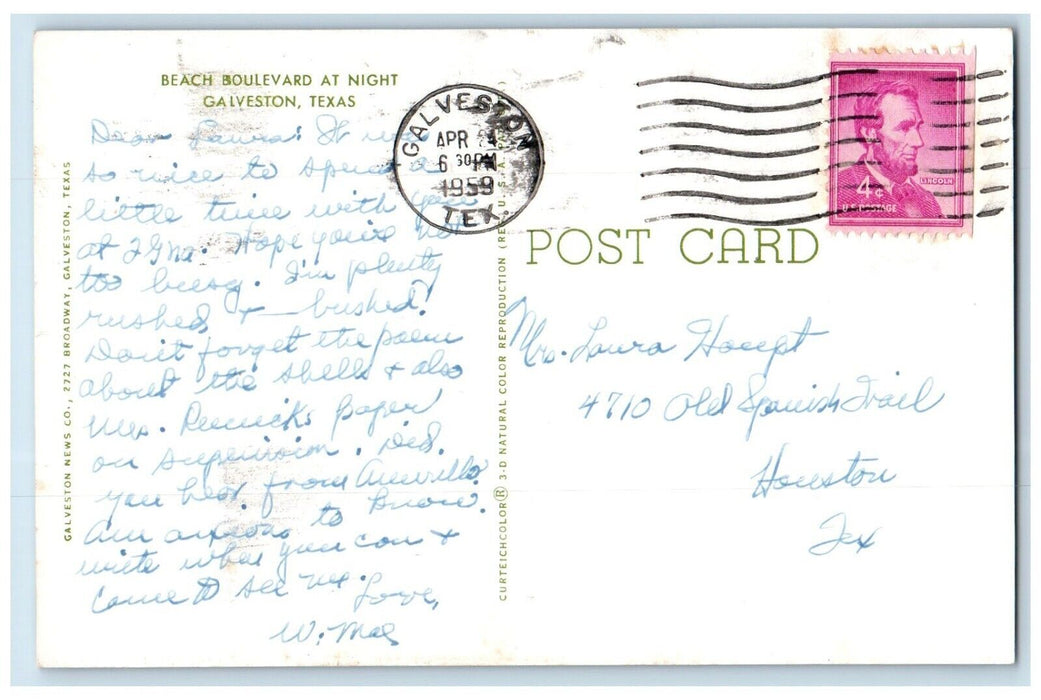 BEACH BOULEVARD AT NIGHT
GALVESTON, TEXAS
Dear Laura: It was
so nice to spend a
little time with you
at Hope you're not
too busy. I'm plenty
rushed & bushed!
Don't forget the poem
about the shells & also
Mrs. paper
on supervision. Did
you hear from Amarillo?
Am anxious to know.
Write when you can &
come to see me.
Love,
W. Mae
GALVESTON NEWS CO., 2727 BROADWAY, GALVESTON, TEXAS
CURTEICHCOLOR® 3-D NATURAL COLOR REPRODUCTION U.S.A.
GALVESTON
APR
6 30 PM
1959
TEX.
4¢
LINCOLN
U.S. POSTAGE
POST CARD
Mrs. Laura Houpt
4710 Old Spanish Trail
Houston
Tex